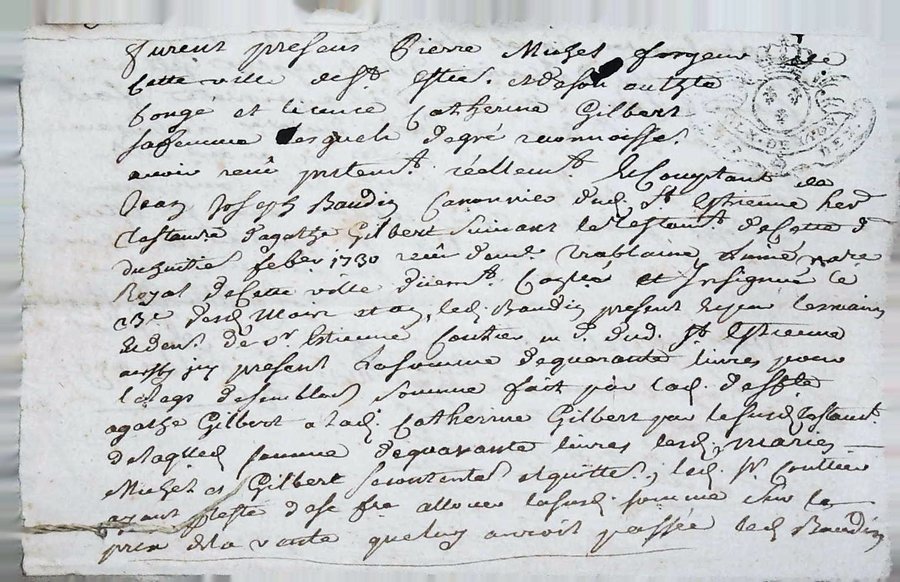 furent presens Pierre Michel forgeur de
Cette ville de St Estie. et de son authté
Congé et licence Catherine Gilbert
sa femme lesquels de gré reconnoisset
avoir receu presentemt réellemt Et Comptant de
Jean Joseph Baudin Canonnier dud. St Estienne her
testamre d'agathe Gilbert suivant le testamt de cette d
du huitie feber 1730 receu
Royal de cette ville duemt et Insignué le
23e desd mois et an, led. Baudin présent
de Sr Estienne md. dud. St Estienne
aussy icy present La somme de quarante livres pour
le legs de semblable Somme fait par lad. deffte
agathe Gilbert a lad. Catherine Gilbert par le susd. testamt
de laquelle somme de quarante livres lesd. mariés
Michel et Gilbert se contentent et quittent, led. Sr
ayant de se fre allouer lasusd. somme sur le
prix de la vente que luy auroit passée led. Baudin